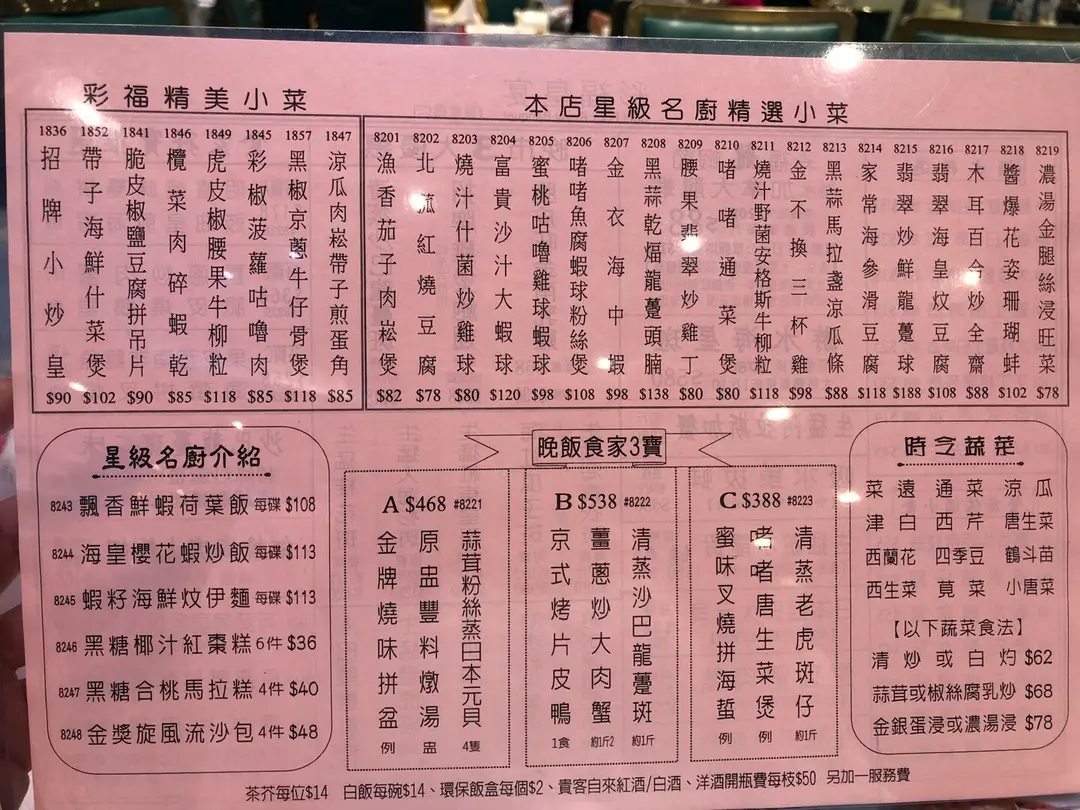 彩福精美小菜
1836 招牌小炒皇 $90
1852 帶子海鮮什菜煲 $102
1841 脆皮椒鹽豆腐拼吊片 $90
1846 欖菜肉碎蝦乾 $85
1849 虎皮椒腰果牛柳粒 $118
1845 彩椒菠蘿咕嚕肉 $85
1857 黑椒京蔥牛仔骨煲 $118
1847 涼瓜肉崧帶子煎蛋角 $85
本店星級名廚精選小菜
8201 漁香茄子肉崧煲 $82
8202 北菰紅燒豆腐 $78
8203 燒汁什菌炒雞球 $80
8204 富貴沙汁大蝦球 $120
8205 蜜桃咕嚕雞球蝦球 $98
8206 啫啫魚腐蝦球粉絲煲 $108
8207 金衣海中蝦 $98
8208 黑蒜乾煏龍躉頭腩 $138
8209 腰果翡翠炒雞丁 $80
8210 啫啫通菜煲 $80
8211 燒汁野菌安格斯牛柳粒 $118
8212 金不換三杯雞 $98
8213 黑蒜馬拉盞涼瓜條 $88
8214 家常海參滑豆腐 $118
8215 翡翠炒鮮龍躉球 $188
8216 翡翠海皇炆豆腐 $108
8217 木耳百合炒全齋 $88
8218 醬爆花姿珊瑚蚌 $102
8219 濃湯金腿絲浸旺菜 $78
星級名廚介紹
8243 飄香鮮蝦荷葉飯 每碟 $108
8244 海皇櫻花蝦炒飯 每碟 $113
8245 蝦籽海鮮炆伊麵 每碟 $113
8246 黑糖椰汁紅棗糕 6件 $36
8247 黑糖合桃馬拉糕 4件 $40
8248 金獎旋風流沙包 4件 $48
晚飯食家3寶
A $468 #8221
蒜茸粉絲蒸日本元貝 4隻
原盅豐料燉湯 盅
金牌燒味拼盆 例
B $538 #8222
清蒸沙巴龍躉斑 約1斤
薑蔥炒大肉蟹 約1斤2
京式烤片皮鴨 1食
C $388 #8223
清蒸老虎斑仔 約1斤
啫啫唐生菜煲 例
蜜味叉燒拼海蜇 例
時令蔬菜
菜遠 通菜 涼瓜
津白 西芹 唐生菜
西蘭花 四季豆 鶴斗苗
西生菜 莧菜 小唐菜
【以下蔬菜食法】
清炒或白灼 $62
蒜茸或椒絲腐乳炒 $68
金銀蛋浸或濃湯浸 $78
茶芥每位$14 白飯每碗$14、環保飯盒每個$2、貴客自來紅酒/白酒、洋酒開瓶費每枝$50 另加一服務費